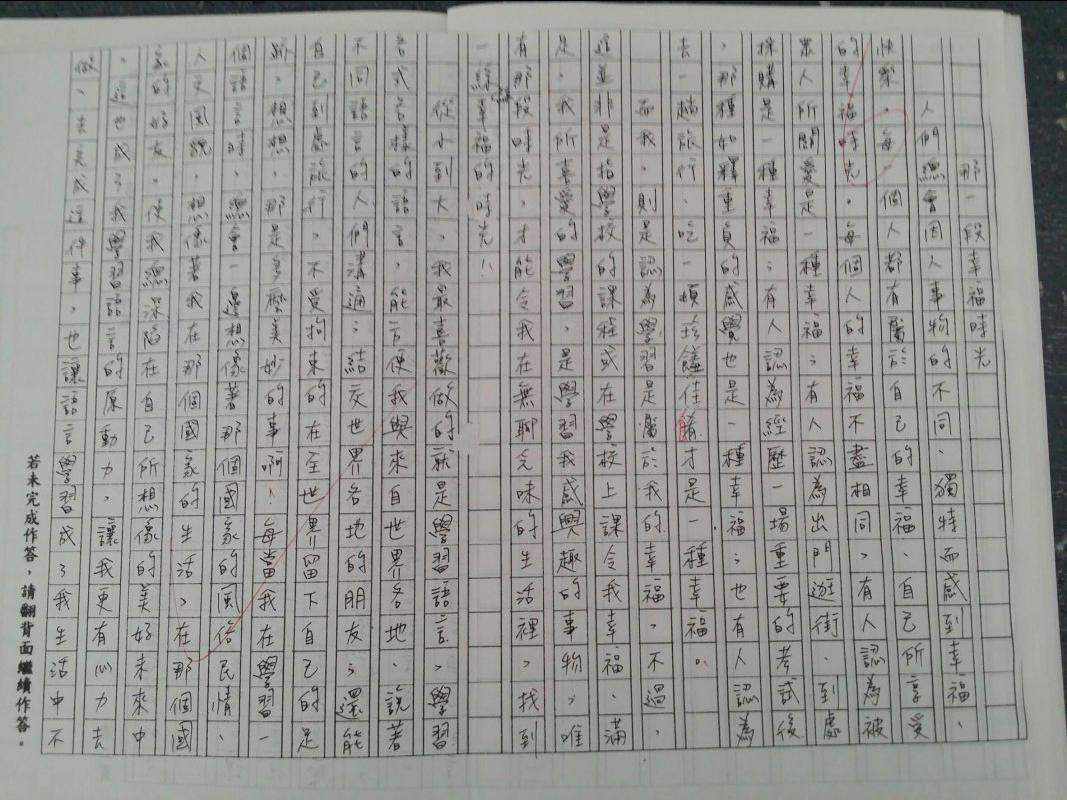 那一段幸福時光
人們總會因人事物的不同、獨特而感到幸福、
快樂。每一個人都有屬於自己的幸福、自己所享受
的幸福時光。每個人的幸福不盡相同,有人認為被
眾人所關愛是一種幸福;有人認為出門逛街、到處
採購是一種幸福;有人認為經歷一場重要的考試後
,那種如釋重負的感覺也是一種幸福;也有人認為
去一趟旅行、吃一頓珍饈佳餚才是一種幸福。
而我,則是認為學習是屬於我的幸福,不過,
這並非是指學校的課程或在學校上課令我幸福、滿
足,我所喜愛的學習,是學習我感興趣的事物,唯
有那段時光,才能令我在無聊乏味的生活裡,找到
一絲幸福的時光!
從小到大,我最喜歡做的就是學習語言、學習
各式各樣的語言,能方便我與來自世界各地、說著
不同語言的人們溝通;結交世界各地的朋友;還能
自己到處旅行,不受拘束的在全世界留下自己的足
跡,想想,那是多麼美妙的事啊!每當我在學習一
個語言時,總會一邊想像著那個國家的風俗民情、
人文風貌,想像著我在那個國家的生活,在那個國
家的好友,使我總深陷在自己所想像的美好未來中
,這也成了我學習語言的原動力,讓我更有心力去
做、去完成這件事,也讓語言學習成了我生活中不
若未完成作答,請翻背面繼續作答。